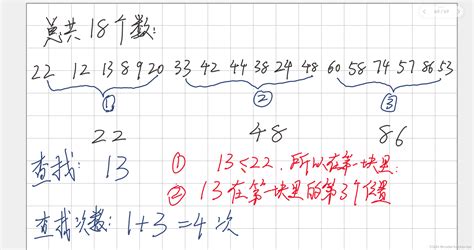 总共18个数:
22 12 13 8 9 20 33 42 44 38 24 48 60 58 74 57 86 53
① ② ③
22 48 86
查找: 13 ① 13≤22,所以在第一块里.
② 13在第一块里的第3个位置
查找次数: 1+3=4次